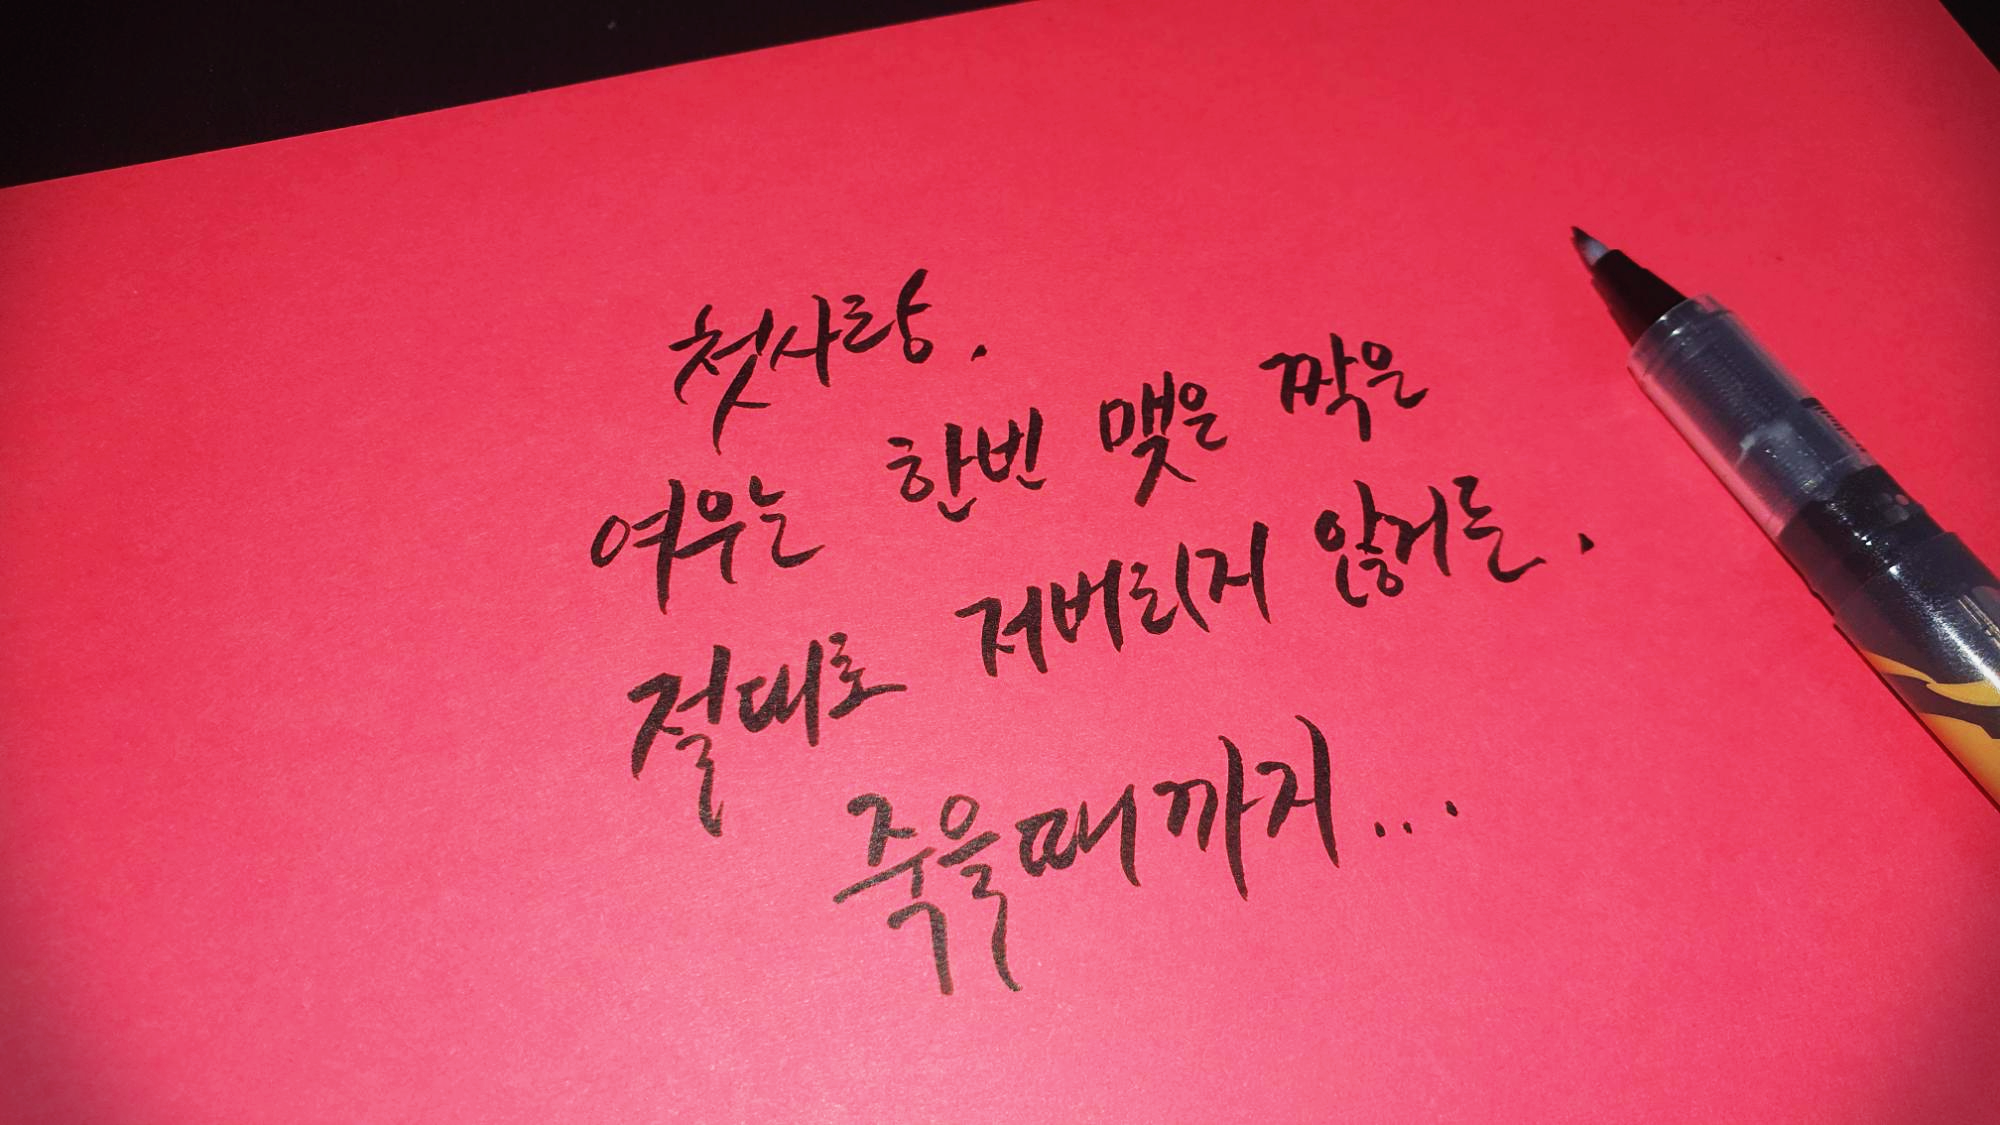 첫사랑.
여우는 한번 맺은 짝은
절대로 저버리지 않거든.
죽을때까지...